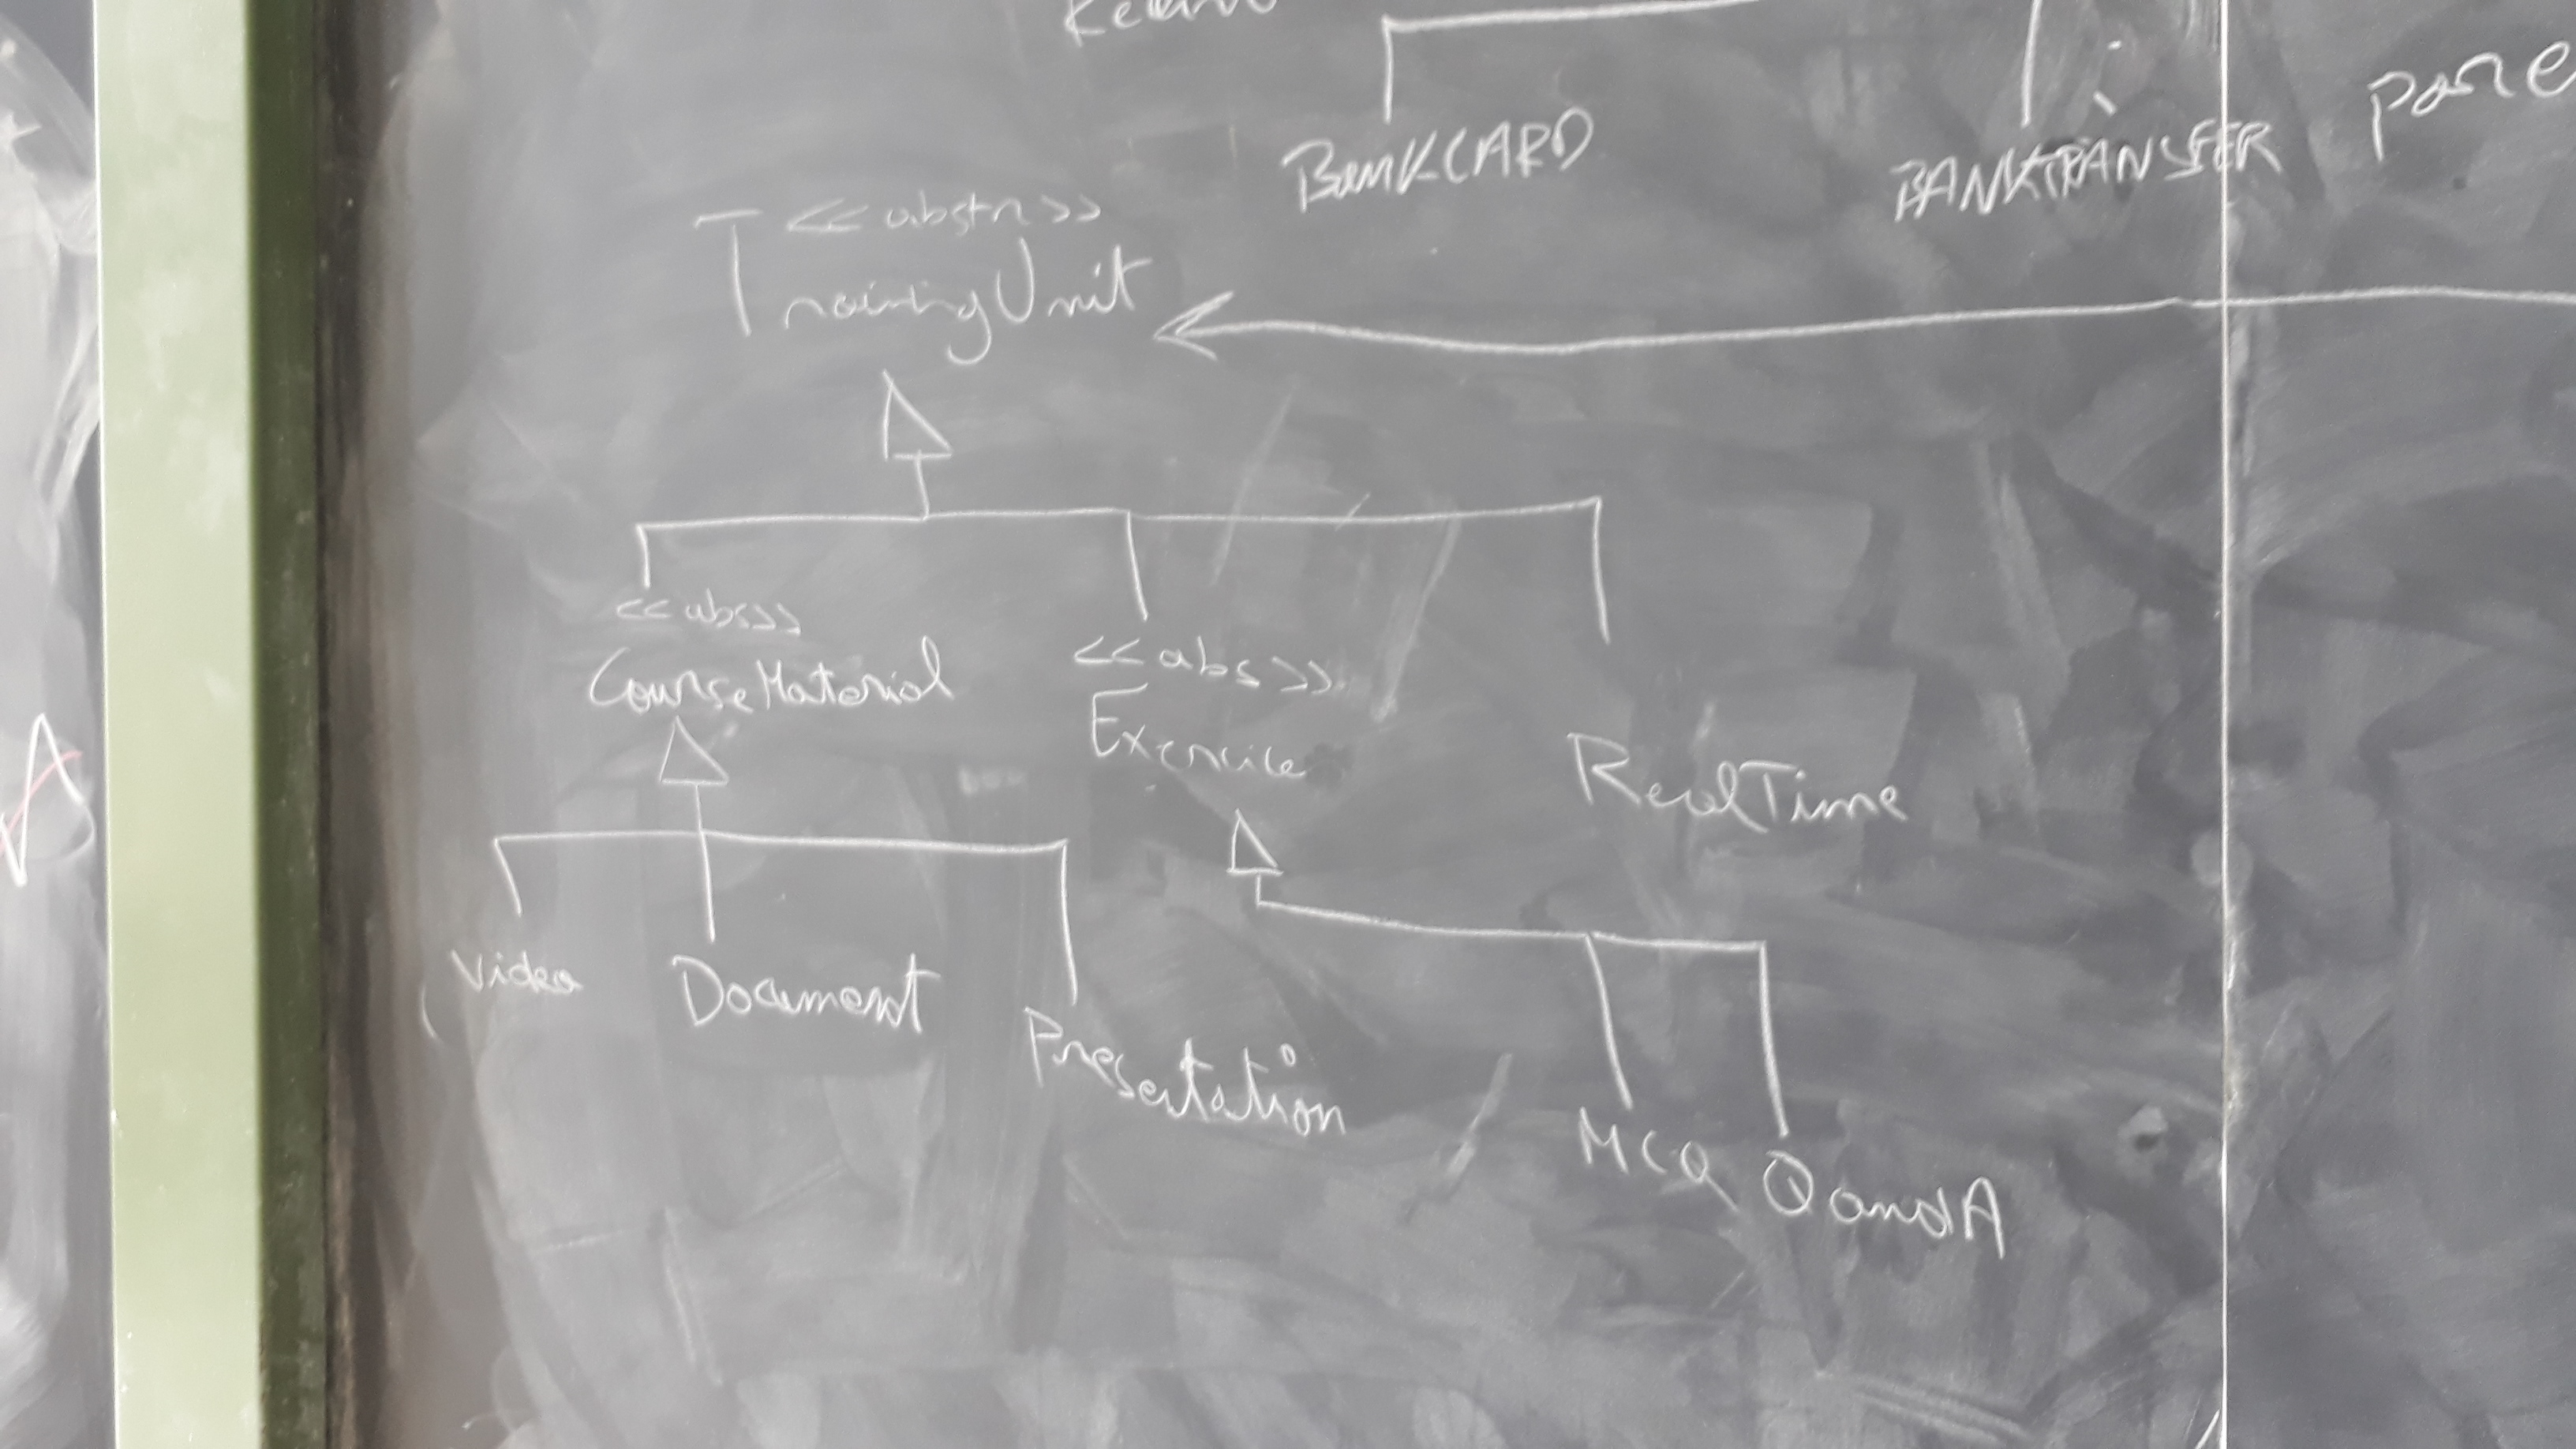 BANKCARD
BANKTRANSFER
<<abstr>>
TrainingUnit
<<abs>>
CourseMaterial
<<abs>>
Exercice
RealTime
Video
Document
Presentation
MCQ QandA